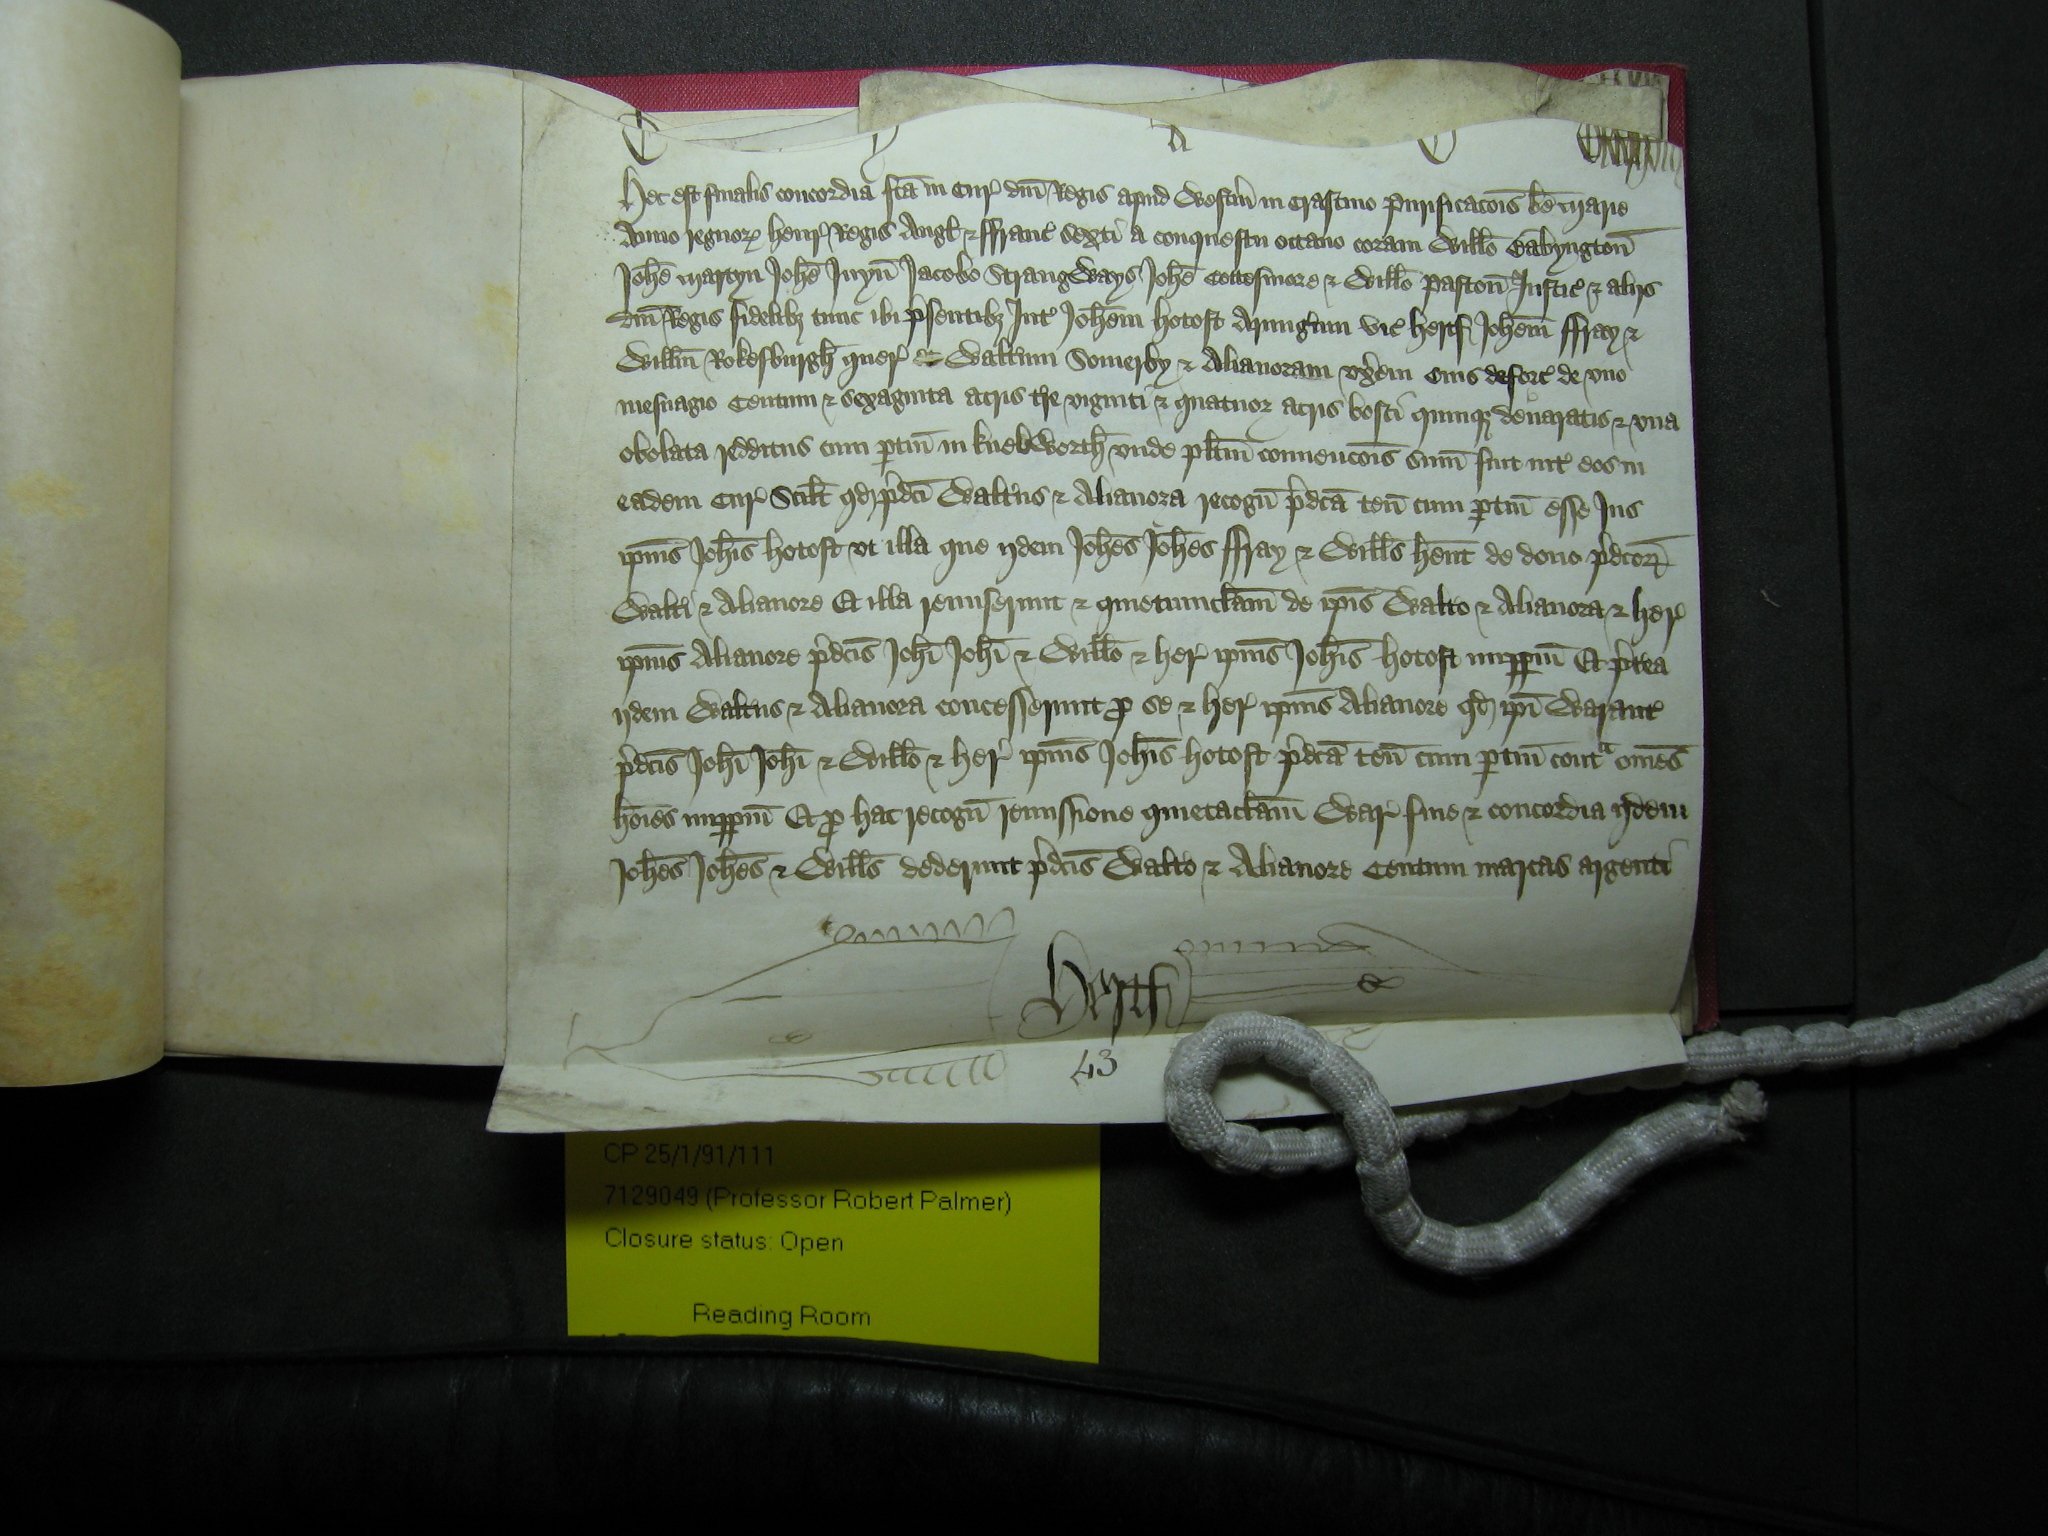 Hec est finalis concordia fc̄a in Cur̛ dn̄i Regis apud Westm̄ in Crastino Purificac̄ois bē Marie
Anno regnoꝝ Henr̛ Regis Angl̛ ⁊ ffranc̛ sexti a conquestu octauo coram Will̄o Babyngton̄
Joh̄e Martyn Joh̄e Juyn̄ Jacobo Strangways Joh̄e Cottesmore ⁊ Will̄o Paston̄ Justic̛ ⁊ alijs
dn̄i Regis fidelibꝫ tunc ibi p̛sentibꝫ Int̛ Joh̄em Hotoft Armig̛um vic̛ Hertf̛ Joh̄em ffray ⁊
Will̄m Rokesburgh̄ quer̛ et Walt̛um Somerby ⁊ Alianoram vx̛em eius deforc̛ de vno
mesuagio Centum ⁊ sexaginta acris t̛re viginti ⁊ quatuor acris bosci quinqꝫ denaratis ⁊ vna
obolata redditus cum ꝑtin̄ in Knebworth̄ vnde pl̄itm̄ conuenc̄ois sum̄ fuit int̛ eos in
eadem Cur̛ Scil̄t qd̛ p̛dc̄i Walt̛us ⁊ Alianora recogn̄ p̛dc̄a ten̄ cum ꝑtin̄ esse Jus
ip̄ius Joh̄is Hotoft vt illa que ijdem Joh̄es Joh̄es ffray ⁊ Will̄s hēnt de dono p̛dc̄oꝝ
Walt̛i ⁊ Alianore Et illa remiserunt ⁊ quietumclam̄ de ip̄is Walt̛o ⁊ Alianora ⁊ her̛
ip̄ius Alianore p̛dc̄is Joh̄i Joh̄i ⁊ Will̄o ⁊ her̛ ip̄ius Joh̄is Hotoft imꝑꝑm̄ Et p̛t̛ea
ijdem Walt̛us ⁊ Alianora concesserunt ꝓ se ⁊ her̛ ip̄ius Alianore qd̛ ip̄i Warant̛
p̛dc̄is Joh̄i Joh̄i ⁊ Will̄o ⁊ her̛ ip̄ius Joh̄is Hotoft p̛dc̄a ten̄ cum ꝑtin̄ contᵃ om̄es
hōies imꝑꝑm̄ Et ꝓ hac recogn̄ remissione quietaclam̄ War̛ fine ⁊ concordia ijdem
Joh̄es Joh̄es ⁊ Will̄s dederunt p̛dc̄is Walt̛o ⁊ Alianore Centum marcas argenti
Hertf̛
43
CP 25/1/91/111
7129049 (Professor Robert Palmer)
Closure status: Open
Reading Room